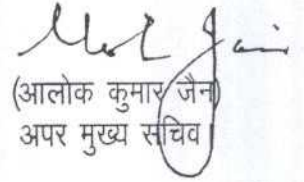 (आलोक कुमार जैन)
अपर मुख्य सचिव